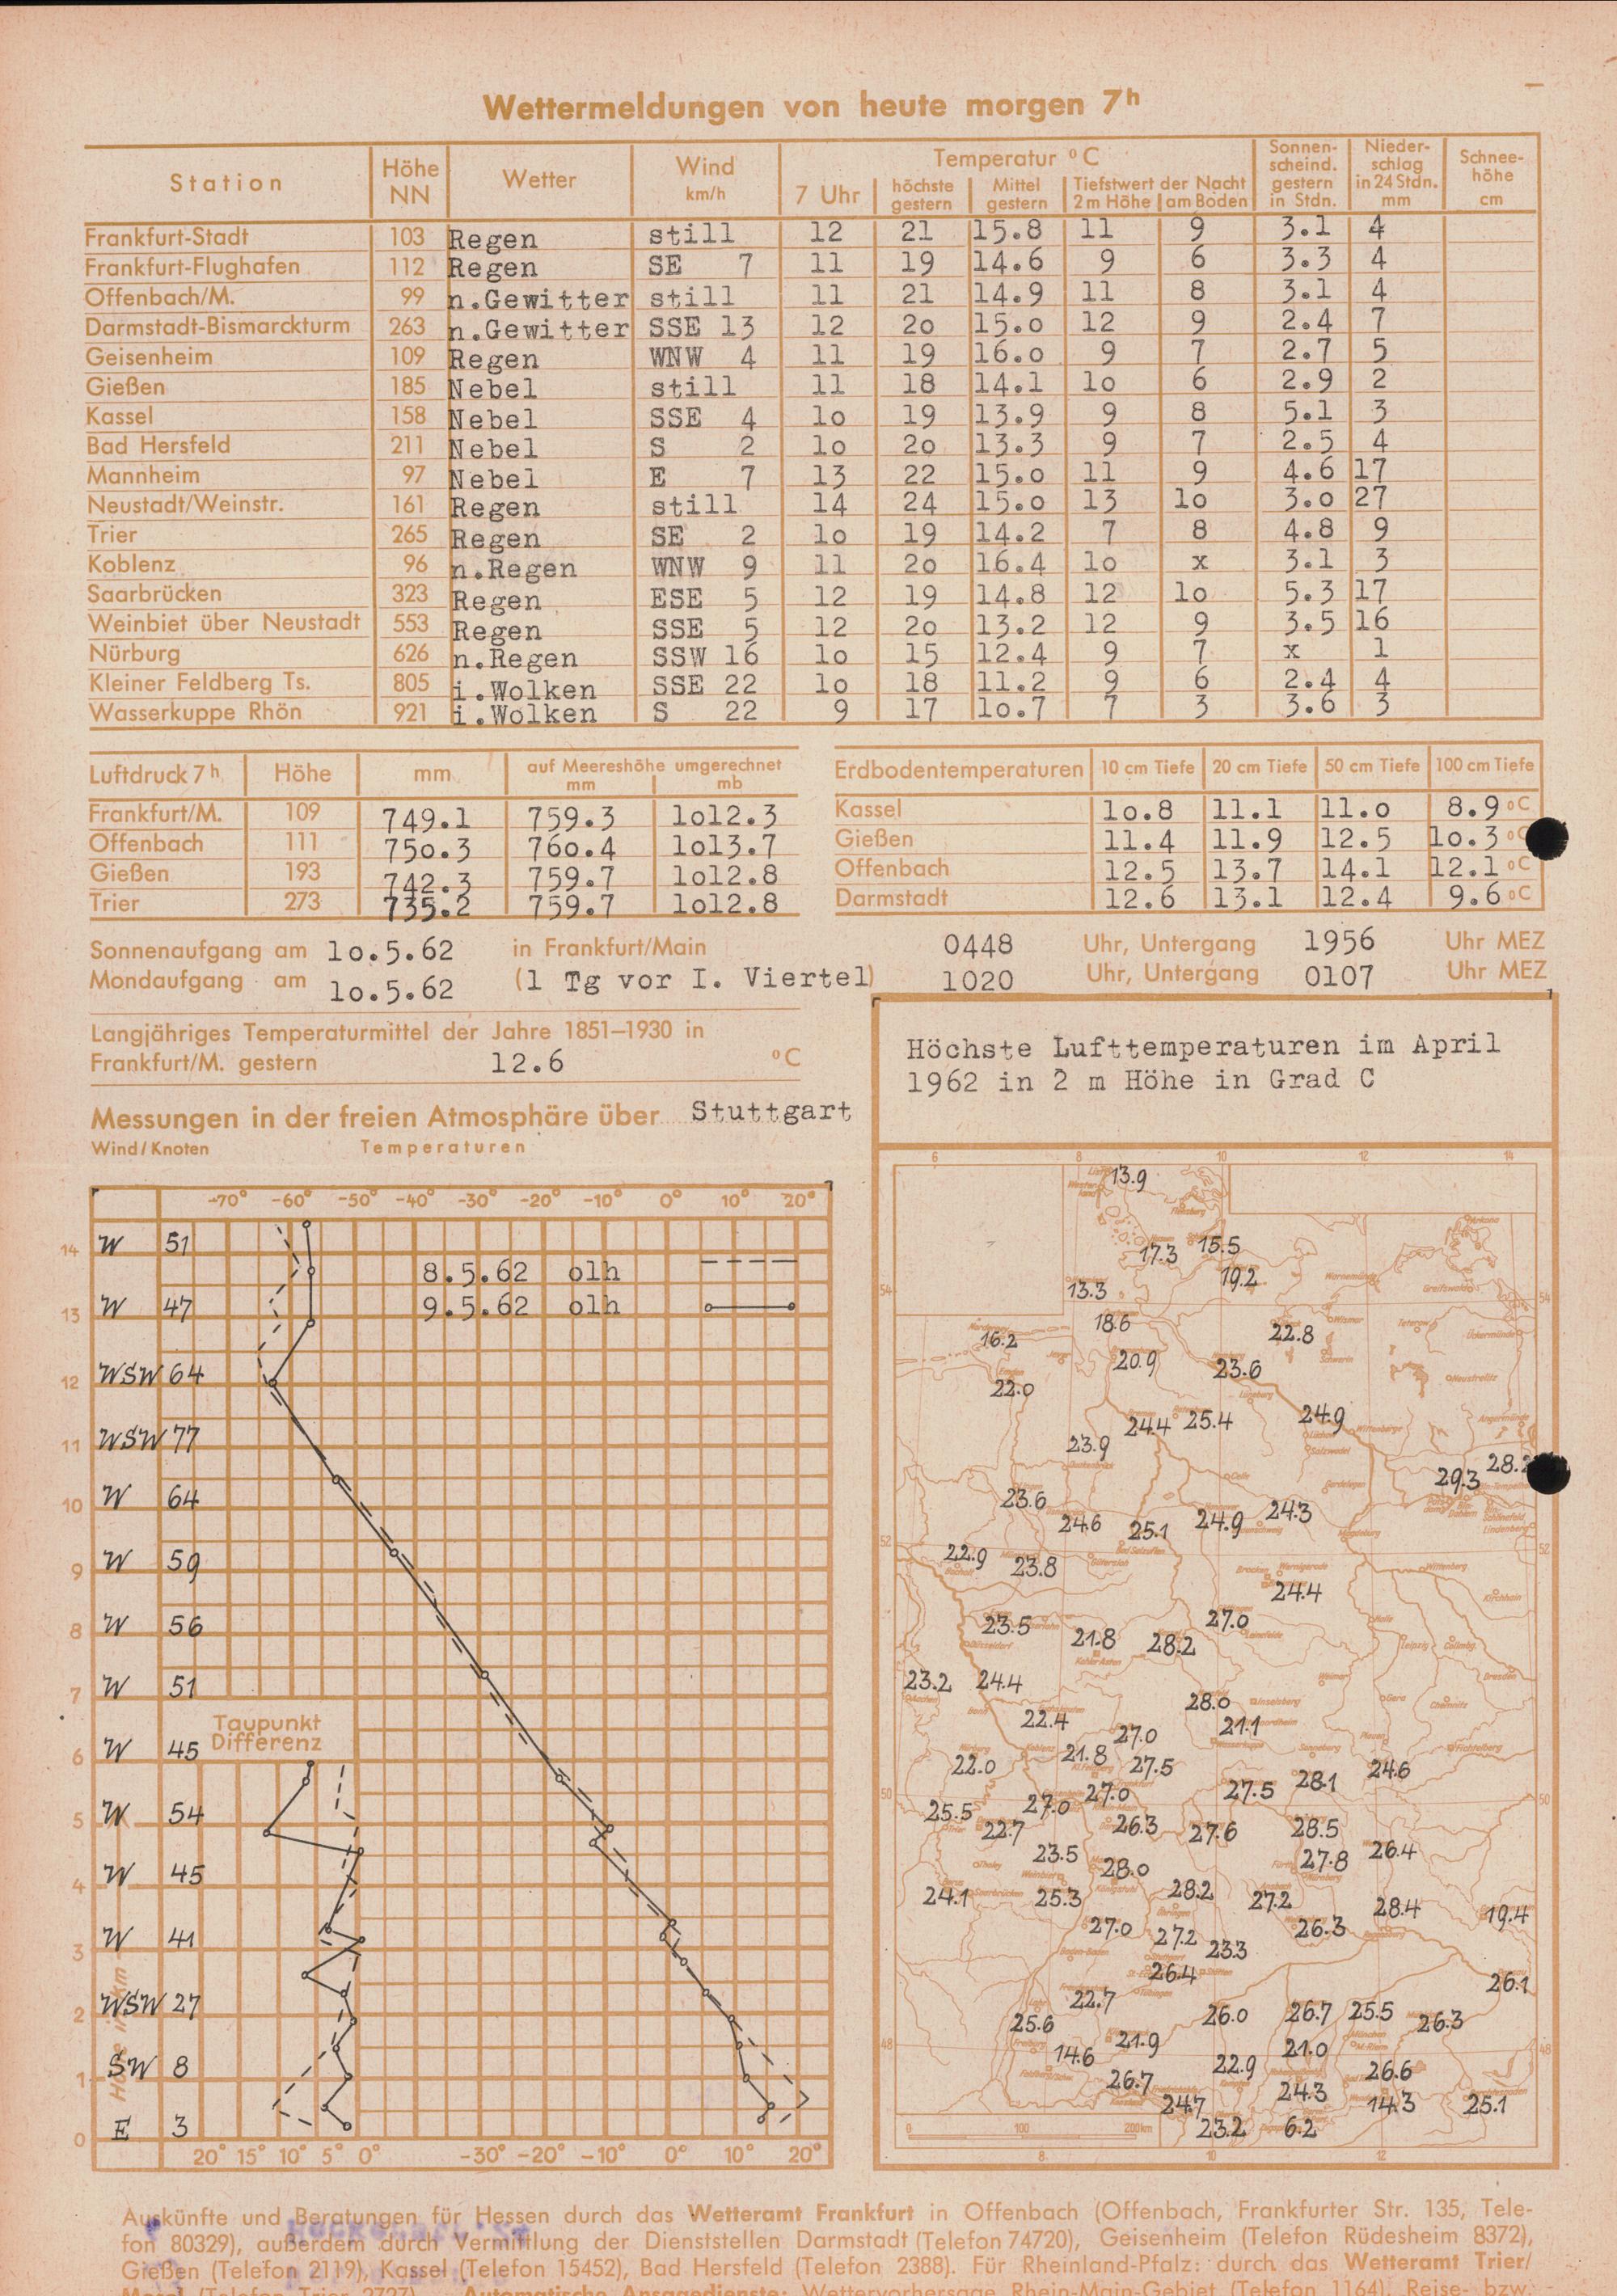 Wettermeldungen von heute morgen 7h
Station Höhe NN Wetter Wind km/h Temperatur °C Sonnenscheind. gestern in Stdn. Niederschlag in 24 Stdn. mm Schneehöhe cm
7 Uhr höchste gestern Mittel gestern Tiefstwert der Nacht 2 m Höhe am Boden
Frankfurt-Stadt 103 Regen still 12 21 15.8 11 9 3.1 4
Frankfurt-Flughafen 112 Regen SE 7 11 19 14.6 9 6 3.3 4
Offenbach/M. 99 n.Gewitter still 11 21 14.9 11 8 3.1 4
Darmstadt-Bismarckturm 263 n.Gewitter SSE 13 12 2o 15.o 12 9 2.4 7
Geisenheim 109 Regen WNW 4 11 19 16.o 9 7 2.7 5
Gießen 185 Nebel still 11 18 14.1 lo 6 2.9 2
Kassel 158 Nebel SSE 4 lo 19 13.9 9 8 5.1 3
Bad Hersfeld 211 Nebel S 2 lo 2o 13.3 9 7 2.5 4
Mannheim 97 Nebel E 7 13 22 15.o 11 9 4.6 17
Neustadt/Weinstr. 161 Regen still 14 24 15.o 13 lo 3.o 27
Trier 265 Regen SE 2 lo 19 14.2 7 8 4.8 9
Koblenz 96 n.Regen WNW 9 11 2o 16.4 lo x 3.1 3
Saarbrücken 323 Regen ESE 5 12 19 14.8 12 lo 5.3 17
Weinbiet über Neustadt 553 Regen SSE 5 12 2o 13.2 12 9 3.5 16
Nürburg 626 n.Regen SSW 16 lo 15 12.4 9 7 x 1
Kleiner Feldberg Ts. 805 i.Wolken SSE 22 lo 18 11.2 9 6 2.4 4
Wasserkuppe Rhön 921 i.Wolken S 22 9 17 lo.7 7 3 3.6 3
Luftdruck 7h Höhe mm auf Meereshöhe umgerechnet mm mb
Frankfurt/M. 109 749.1 759.3 lol2.3
Offenbach 111 75o.3 76o.4 lol3.7
Gießen 193 742.3 759.7 lol2.8
Trier 273 735.2 759.7 lol2.8
Erdbodentemperaturen 10 cm Tiefe 20 cm Tiefe 50 cm Tiefe 100 cm Tiefe
Kassel lo.8 11.1 11.o 8.9 °C
Gießen 11.4 11.9 12.5 lo.3 °C
Offenbach 12.5 13.7 14.1 12.1 °C
Darmstadt 12.6 13.1 12.4 9.6 °C
Sonnenaufgang am lo.5.62 in Frankfurt/Main 0448 Uhr, Untergang 1956 Uhr MEZ
Mondaufgang am lo.5.62 (1 Tg vor I. Viertel) 1020 Uhr, Untergang 0107 Uhr MEZ
Langjähriges Temperaturmittel der Jahre 1851–1930 in
Frankfurt/M. gestern 12.6 °C
Messungen in der freien Atmosphäre über Stuttgart
Wind/Knoten Temperaturen
-70° -60° -50° -40° -30° -20° -10° 0° 10° 20°
14 W 51
8.5.62 olh
13 W 47 9.5.62 olh
12 WSW 64
11 WSW 77
10 W 64
9 W 59
8 W 56
7 W 51
Taupunkt
Differenz
6 W 45
5 W 54
4 W 45
3 W 41
2 WSW 27
1 SW 8
0 E 3
20° 15° 10° 5° 0° -30° -20° -10° 0° 10° 20°
Höchste Lufttemperaturen im April
1962 in 2 m Höhe in Grad C
6 8 10 12 14
13.9
17.3 15.5
13.3 19.2
54 54
18.6 22.8
16.2
20.9 23.6
22.0
24.4 25.4 24.9
23.9
29.3 28.2
23.6
24.6 25.1 24.9 24.3
52 52
22.9 23.8
24.4
23.5 21.8 28.2 27.0
23.2 24.4
28.0
22.4 27.0 21.1
22.0 21.8 27.5
27.5 28.1 24.6
50 50
25.5 27.0 27.0
22.7 26.3 27.6 28.5
23.5 28.0 27.8 26.4
24.1 25.3 28.2 27.2
28.4 19.4
27.0 27.2 23.3 26.3
26.4
26.1
22.7
25.6 26.0 26.7 25.5 26.3
48 48
14.6 21.9 21.0
22.9 26.6
26.7 24.3
24.7 14.3 25.1
23.2 6.2
0 100 200 km
8 10 12
Auskünfte und Beratungen für Hessen durch das Wetteramt Frankfurt in Offenbach (Offenbach, Frankfurter Str. 135, Tele-
fon 80329), außerdem durch Vermittlung der Dienststellen Darmstadt (Telefon 74720), Geisenheim (Telefon Rüdesheim 8372),
Gießen (Telefon 2119), Kassel (Telefon 15452), Bad Hersfeld (Telefon 2388). Für Rheinland-Pfalz: durch das Wetteramt Trier/
Mosel (Telefon Trier 2727). Automatische Ansagedienste: Wettervorhersage Rhein-Main-Gebiet (Telefon 1164), Reise, bzw.